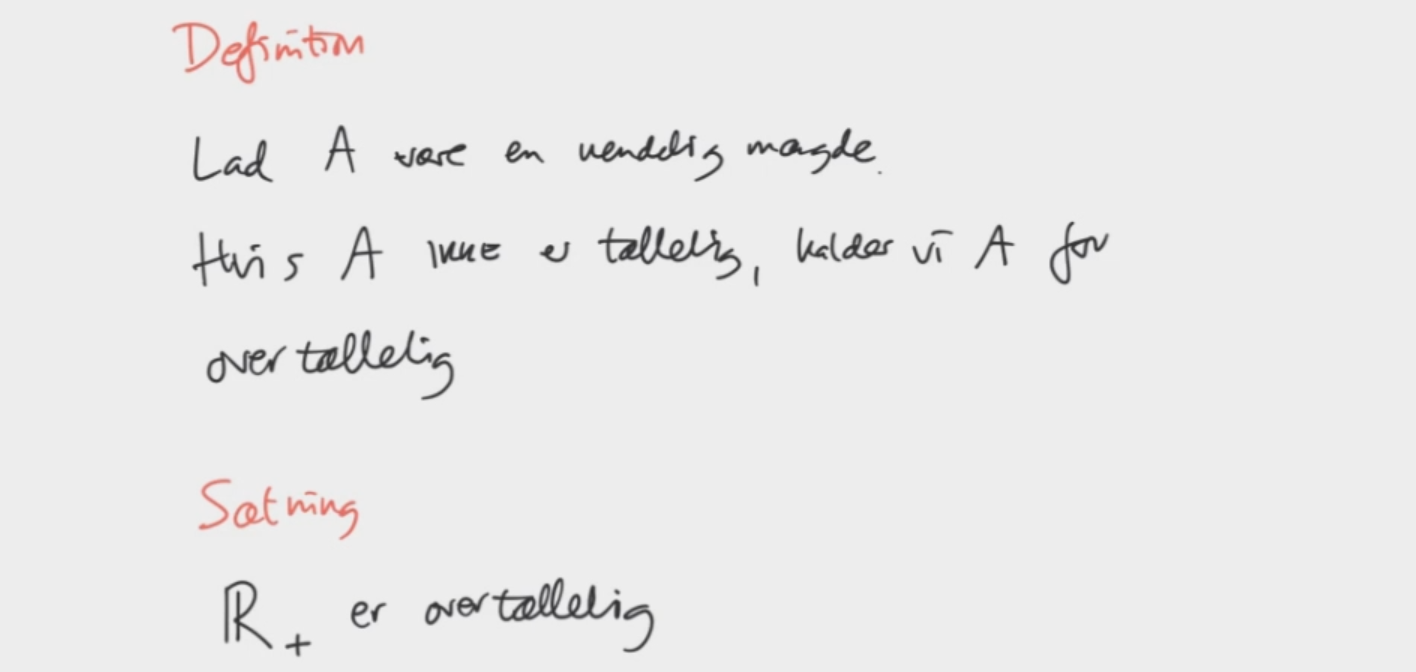 Definition
Lad A være en uendelig mængde.
Hvis A ikke er tællelig, kalder vi A for
overtællelig
Sætning
ℝ₊ er overtællelig